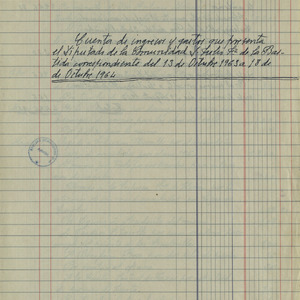 Cuenta de ingresos y gastos que presenta
el Diputado de la Comunidad D. Carlos Fz de la Bas-
tida correspondiente del 13 de Octubre 1963 a 18 de
de Octubre 1964